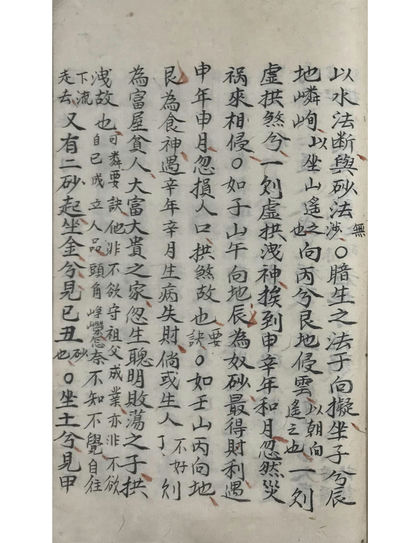 以水法断與砂法無渉○暗生之法子向擬坐子兮辰
地嶙峋以坐山遙之也向丙兮艮地侵雲以朝向遙之也一則
虛拱煞兮一則虛拱洩神挨到申辛年和月忽然災
禍來相侵○如子山午向地辰為奴砂最得財利遇
申年申月忽損人口拱煞故也要訣○如壬山丙向地
艮為食神遇辛年辛月生病失財倘或生人丁不好則
為富屋貧人大富大貴之家忽生聰明敗蕩之子拱
洩故也可憐要訣他非不欲守祖父成業亦非不欲自己成立人品頭角崢嶸怎奈不知不覺自往下流
走去又有二砂起坐金兮見巳丑砂也○坐土兮見甲